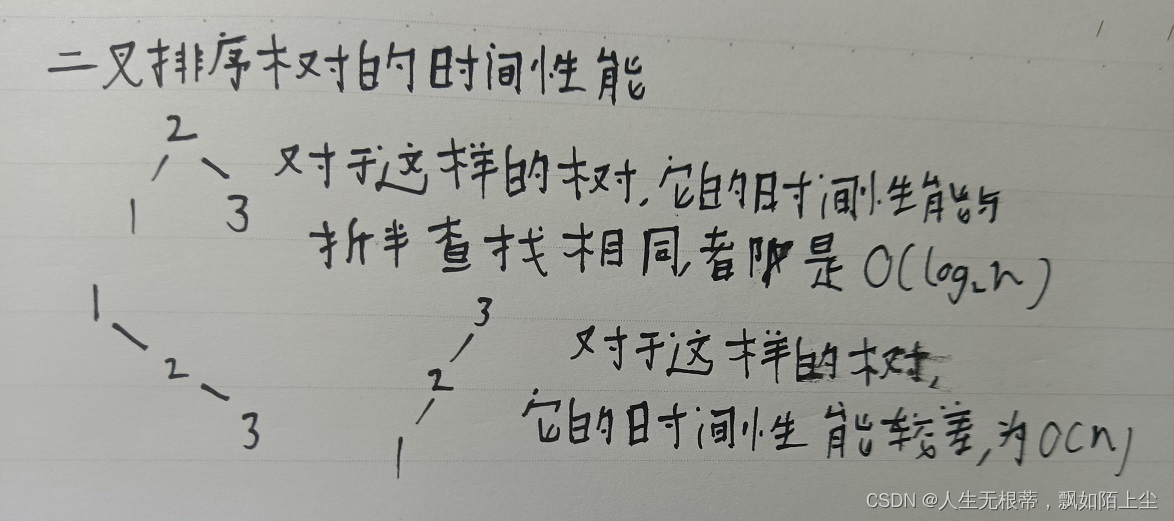 二叉排序树的时间性能
2
1 3
对于这样的树,它的时间性能与
折半查找相同,都是O(log₂n)
1
2
3
3
2
1
对于这样的树,
它的时间性能较差,为O(n)
CSDN @人生无根蒂，飘如陌上尘